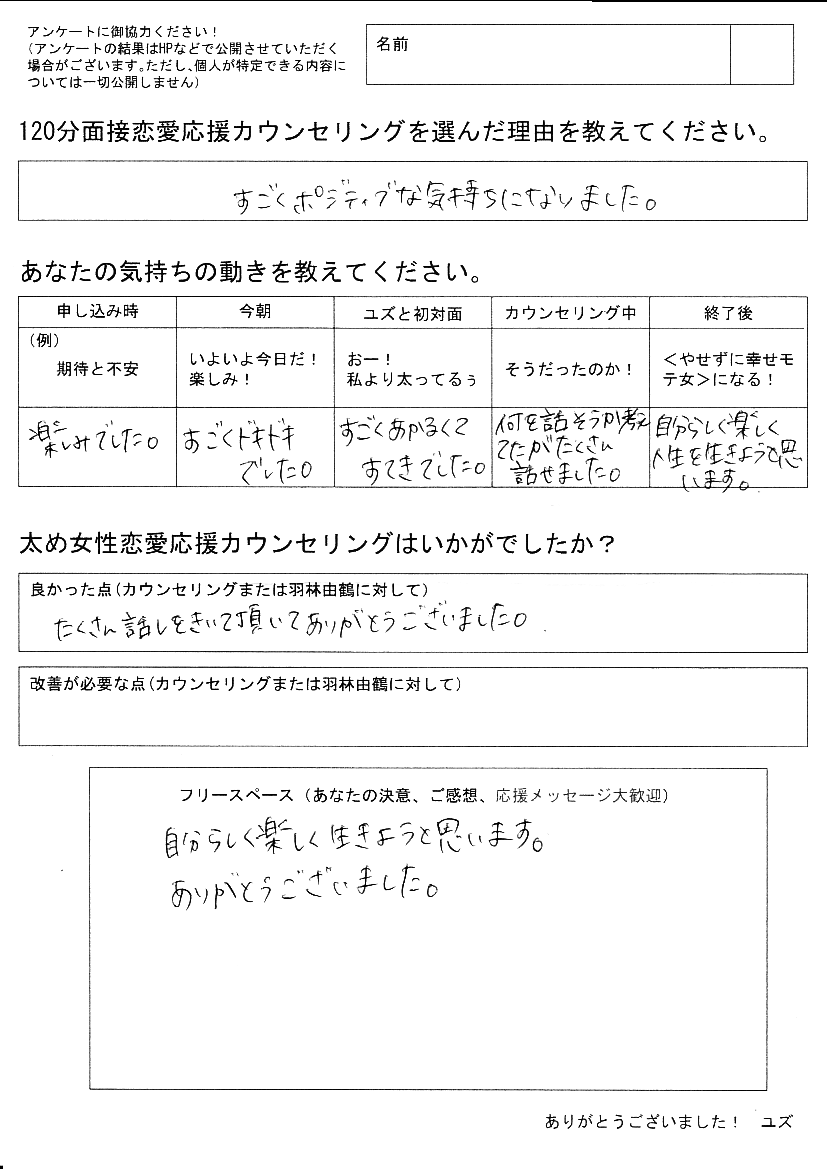 アンケートに御協力ください！
（アンケートの結果はHPなどで公開させていただく
場合がございます。ただし、個人が特定できる内容に
ついては一切公開しません）
名前
120分面接恋愛応援カウンセリングを選んだ理由を教えてください。
すごくポジティブな気持ちになりました。
あなたの気持ちの動きを教えてください。
申し込み時 今朝 ユズと初対面 カウンセリング中 終了後
（例）
期待と不安
いよいよ今日だ！
楽しみ！
おー！
私より太ってるぅ
そうだったのか！
＜やせずに幸せモ
テ女＞になる！
楽しみでした。
すごくドキドキ
でした。
すごくあかるくて
すてきでした。
何を話そうか考え
てたがたくさん
話せました。
自分らしく楽しく
人生を生きようと思
います。
太め女性恋愛応援カウンセリングはいかがでしたか？
良かった点（カウンセリングまたは羽林由鶴に対して）
たくさん話しをきいて頂いてありがとうございました。
改善が必要な点（カウンセリングまたは羽林由鶴に対して）
フリースペース（あなたの決意、ご感想、応援メッセージ大歓迎）
自分らしく楽しく生きようと思います。
ありがとうございました。
ありがとうございました！　ユズ